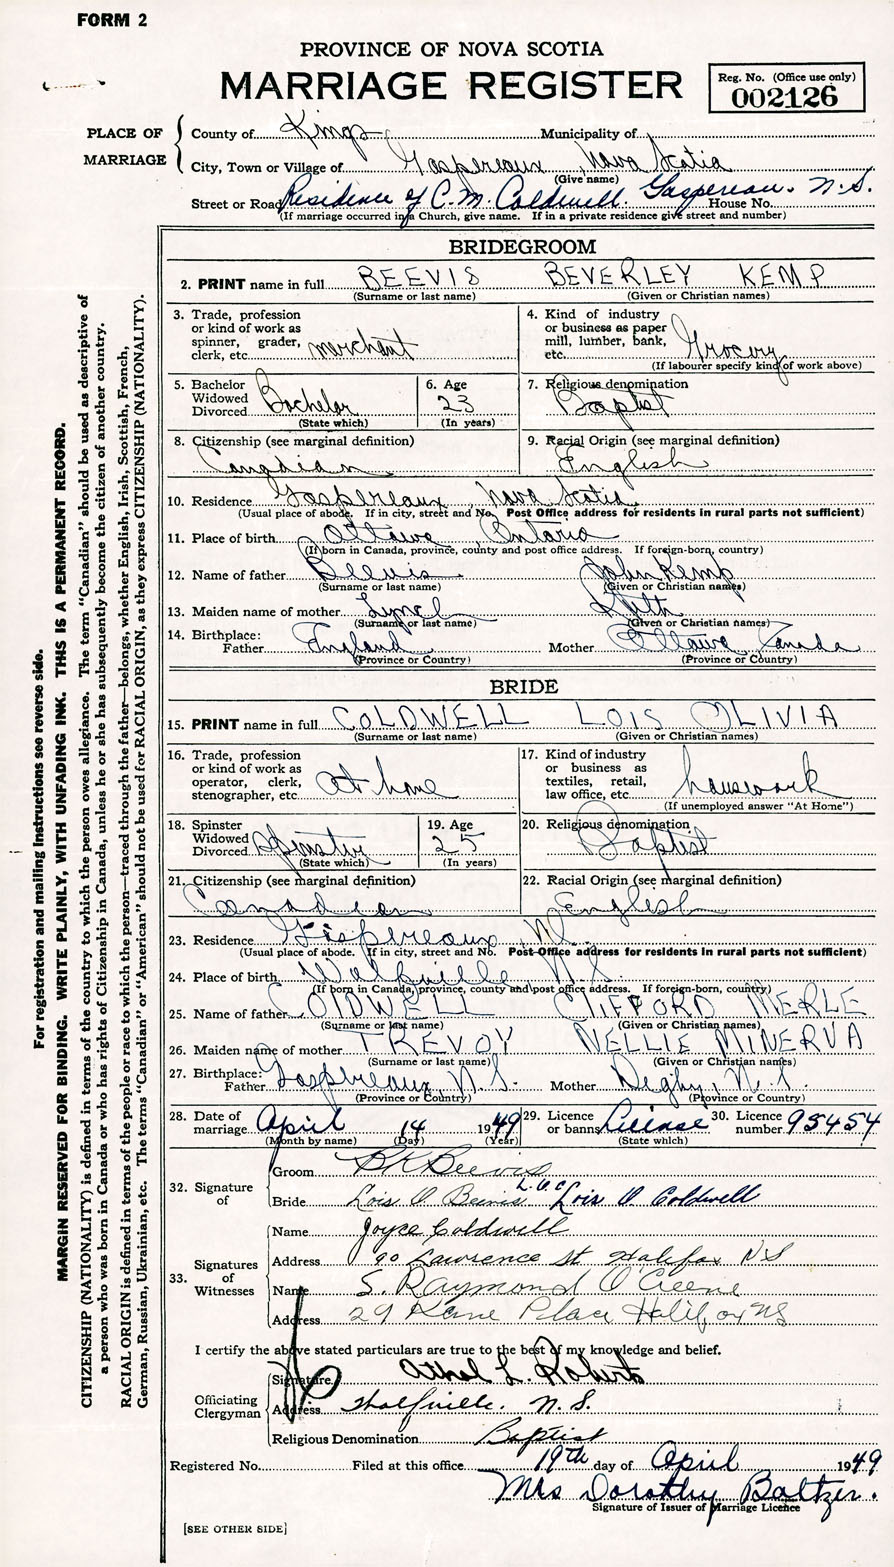 FORM 2
PROVINCE OF NOVA SCOTIA
MARRIAGE REGISTER
Reg. No. (Office use only)
002126
PLACE OF MARRIAGE
County of Kings Municipality of
City, Town or Village of Gaspereaux Nova Scotia
(Give name)
Street or Road Residence of C. M. Coldwell. Gaspereau. N.S. House No.
(If marriage occurred in a Church, give name. If in a private residence give street and number)
BRIDEGROOM
2. PRINT name in full BEEVIS BEVERLEY KEMP
(Surname or last name) (Given or Christian names)
3. Trade, profession
or kind of work as
spinner, grader,
clerk, etc. merchant
4. Kind of industry
or business as paper
mill, lumber, bank,
etc. Grocery
(If labourer specify kind of work above)
5. Bachelor
Widowed
Divorced Bachelor
(State which)
6. Age
23
(In years)
7. Religious denomination
Baptist
8. Citizenship (see marginal definition)
Canadian
9. Racial Origin (see marginal definition)
English
10. Residence Gaspereaux, Nova Scotia
(Usual place of abode. If in city, street and No. Post Office address for residents in rural parts not sufficient)
11. Place of birth Ottawa Ontario
(If born in Canada, province, county and post office address. If foreign-born, country)
12. Name of father Beevis John Kemp
(Surname or last name) (Given or Christian names)
13. Maiden name of mother Ruth
(Surname or last name) (Given or Christian names)
14. Birthplace:
Father England Mother Ottawa, Canada
(Province or Country) (Province or Country)
BRIDE
15. PRINT name in full COLDWELL LOIS OLIVIA
(Surname or last name) (Given or Christian names)
16. Trade, profession
or kind of work as
operator, clerk,
stenographer, etc. At home
17. Kind of industry
or business as
textiles, retail,
law office, etc. housework
(If unemployed answer "At Home")
18. Spinster
Widowed
Divorced Spinster
(State which)
19. Age
25
(In years)
20. Religious denomination
Baptist
21. Citizenship (see marginal definition)
Canadian
22. Racial Origin (see marginal definition)
English
23. Residence Gaspereaux, N.S.
(Usual place of abode. If in city, street and No. Post Office address for residents in rural parts not sufficient)
24. Place of birth Wolfville, N.S.
(If born in Canada, province, county and post office address. If foreign-born, country)
25. Name of father COLDWELL CLIFFORD MERLE
(Surname or last name) (Given or Christian names)
26. Maiden name of mother TREVOY NELLIE MINERVA
(Surname or last name) (Given or Christian names)
27. Birthplace:
Father Gaspereaux, N.S. Mother Digby, N.S.
(Province or Country) (Province or Country)
28. Date of
marriage April 14 1949
(Month by name) (Day) (Year)
29. Licence
or banns License
(State which)
30. Licence
number 95454
32. Signature of
Groom B K Beevis
Bride Lois O. Beevis L.O.C. Lois O. Coldwell
33. Signatures of Witnesses
Name Joyce Coldwell
Address 90 Lawrence St Halifax NS
Name S. Raymond
Address 29 Kane Place Halifax NS
I certify the above stated particulars are true to the best of my knowledge and belief.
Officiating Clergyman
Signature Athol L. Roberts
Address Wolfville. N. S.
Religious Denomination Baptist
Registered No. Filed at this office 19th day of April 1949
Mrs Dorothy Baltzer.
Signature of Issuer of Marriage Licence
[SEE OTHER SIDE]
For registration and mailing instructions see reverse side.
MARGIN RESERVED FOR BINDING. WRITE PLAINLY, WITH UNFADING INK. THIS IS A PERMANENT RECORD.
CITIZENSHIP (NATIONALITY) is defined in terms of the country to which the person owes allegiance. The term "Canadian" should be used as descriptive of
a person who was born in Canada or who has rights of Citizenship in Canada, unless he or she has subsequently become the citizen of another country.
RACIAL ORIGIN is defined in terms of the people or race to which the person—traced through the father—belongs, whether English, Irish, Scottish, French,
German, Russian, Ukrainian, etc. The terms "Canadian" or "American" should not be used for RACIAL ORIGIN, as they express CITIZENSHIP (NATIONALITY).